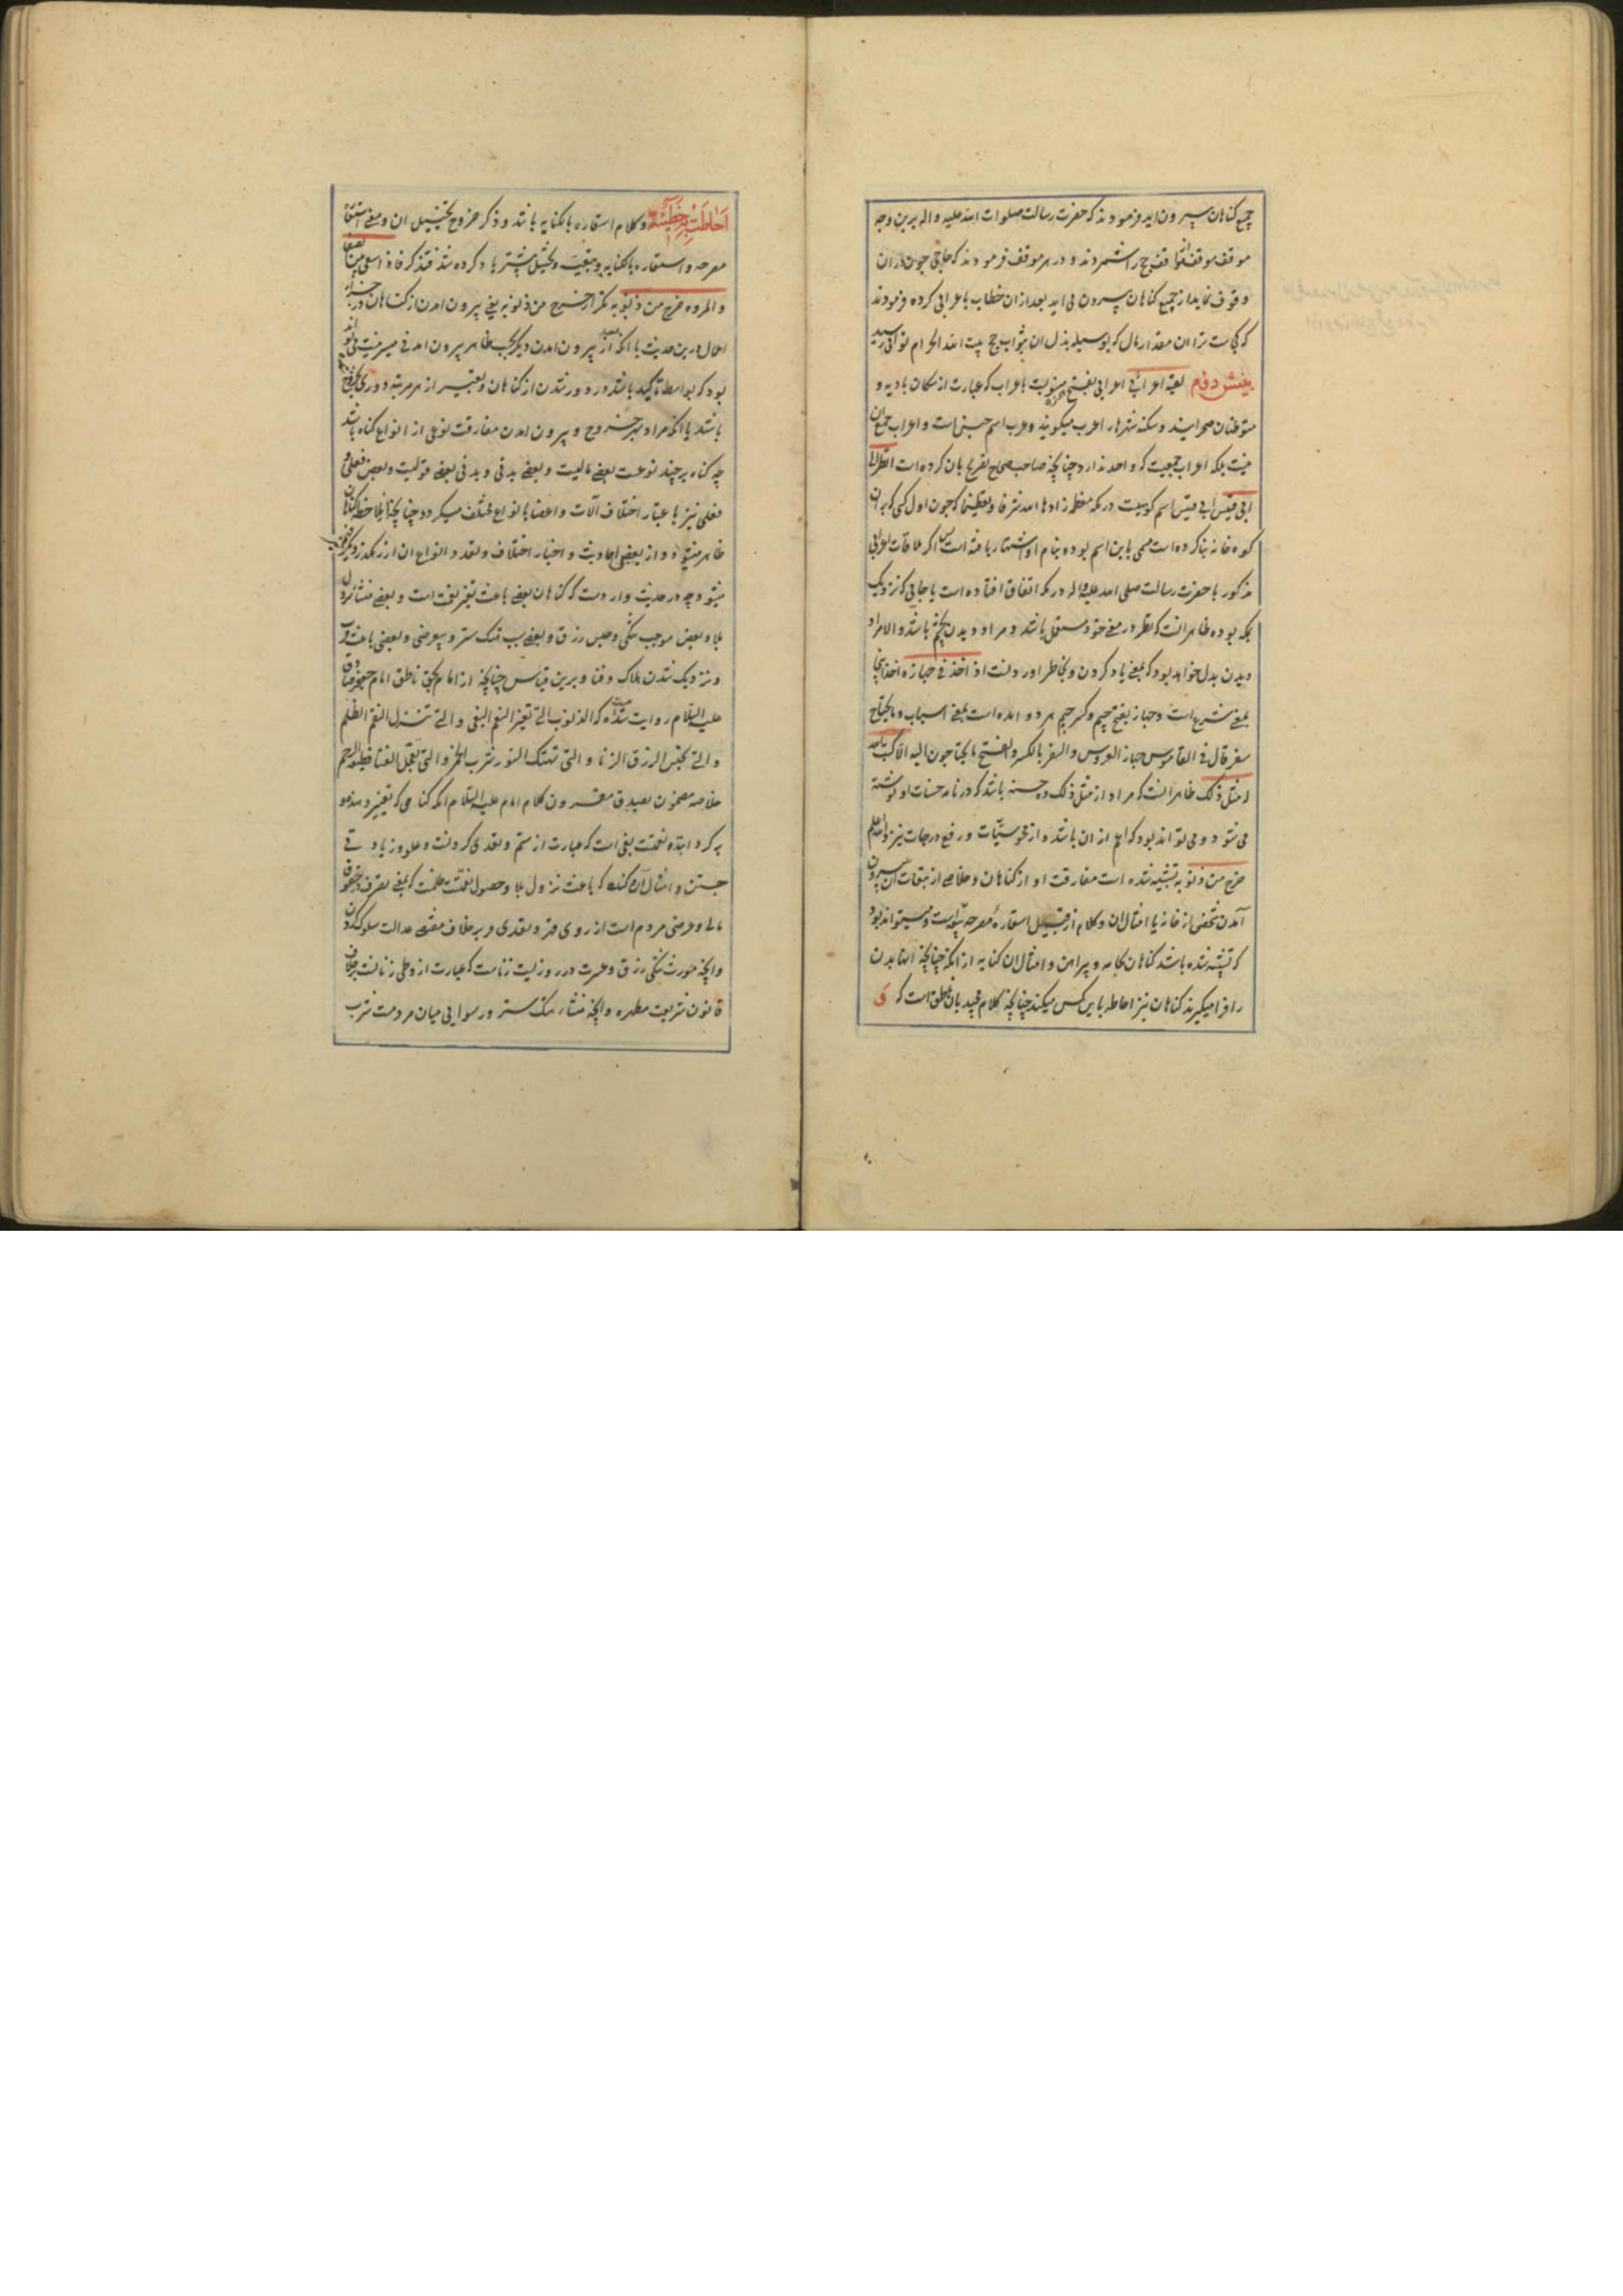 جمیع کناهان بیرون اید و فرمودند که حضرت رسالت صلوات الله علیه و اله برین وجه
موقف موقف مواقف حج را شمردند و در هر موقف فرمودند که حاجی چون در ان
وقوف نماید از جمیع کناهان بیرون می اید بعد از ان خطاب باعرابی کرده فرمودند
که کجاست ترا ان مقدار مال که بوسیله بذل ان بثواب حج بیت الله الحرام توانی رسید
بینش دوم لقیه اعرابی اعرابی بفتح همزه منسوبست باعراب که عبارت از سکان بادیه و
متوطنان صحرایند و سکنه شهرها را عرب میکویند و عرب اسم جنس است و اعراب جمع ان
نیست بلکه اعراب جمعیست که واحد ندارد چنانچه صاحب صحاح تصریح بان کرده است انظر الی
ابی قبیس ابی قبیس اسم کوهیست در مکه معظمه زادها الله شرفا و تعظیما که چون اول کسی که بر ان
کوه خانه بنا کرده است مسمی باین اسم بوده بنام او اشتهار یافته است پس اکر ملاقات اعرابی
مذکور با حضرت رسالت صلی الله علیه و اله در مکه اتفاق افتاده است یا جایی که نزدیک
بمکه بوده ظاهر انست که نظر در معنی خود مستعمل باشد و مراد دیدن بچشم باشد و الا مراد
دیدن بدل خواهد بود که بمعنی یاد کردن و بخاطر اوردنست اذا اخذ فی جهازه اخذ اینجا
بمعنی شروع است و جهاز بفتح جیم و کسر جیم هر دو امده است بمعنی اسباب و ما یحتاج
سفر قال فی القاموس جهاز العروس و السفر بالکسر و الفتح ما یحتاجون الیه الا کتب الله
له مثل ذلک ظاهر انست که مراد از مثل ذلک ده حسنه باشد که در نامه حسنات او نوشته
می شود و می تواند بود که اعم از ان باشد و از محو سیئات و رفع درجات نیز و الله اعلم
خرج من ذنوبه تشبیه شده است مفارقت او از کناهان و خلاصی از تبعات ان به بیرون
آمدن شخصی از خانه یا امثال ان و کلام از قبیل استعاره مصرحه تبعیه است و میتواند بود
که تشبیه شده باشد کناهان بجامه و پیراهن و امثال ان کنایه از انکه چنانچه انها بدن
را فرا میکیرند کناهان نیز احاطه باین کس میکنند چنانچه کلام مجید بان ناطق است که وَ
اَحاطَتْ بِهِ خَطیئَتُهُ و کلام استعاره بالکنایه باشد و ذکر خروج تخییل ان و معنی استعاره
مصرحه و استعاره بالکنایه و تبعیت و تخییل پیشتر یاد کرده شد فتذکر فاذا سعی بین الصفا
و المروه خرج من ذنوبه تکرار خرج من ذنوبه یعنی بیرون امدن از کناهان در جزاء
اعمال درین حدیث با انکه بعد از بیرون امدن دیکر بحسب ظاهر بیرون امدنی میسر نیست می تواند
بود که بواسطه تاکید باشد در دور شدن از کناهان و تعبیر از هر مرتبه دوری بخروج
باشد یا انکه مراد بهر خروج و بیرون امدن مفارقت نوعی از انواع کناه باشد
چه کناه بر چند نوعست بعضی مالیست و بعضی بدنی و بدنی بعضی قولیست و بعضی فعلی و
فعلی نیز باعتبار اختلاف آلات و اعضا بانواع مختلف میکردد چنانچه بملاحظه کتاب
ظاهر میشود و از بعضی احادیث و اخبار اختلاف و تعدد انواع ان از رهکذر دیکر مفهوم
میشود چه در حدیث وارد ست که کناهان بعضی باعث تغیر نعمت است و بعضی منشا نزول
بلا و بعضی موجب تنکی و حبس رزق و بعضی سبب هتک ستر و بیعرضی و بعضی باعث قرب
و نزدیک شدن هلاک و فنا و برین قیاس چنانچه از امام بحق ناطق امام جعفر صادق
علیه السلام روایت شده که الذنوب التی تغیر النعم البغی و التی تنزل النقم الظلم
و التی تحبس الرزق الزنا و التی تهتک الستور شرب الخمر و التی تعجل الفنا قطیعة الرحم
خلاصه مضمون بصدق مقرون کلام امام علیه السلام انکه کناهی که تغییر دهنده
پرکردانده نعمت بغی است که عبارت از ستم و تعدی کردنست و علو و زیادتی
جستن و امثال ان کناه که باعث نزول بلا و حصول نقمتست ظلمست که بمعنی تصرف در حقوق
مالی و عرضی مردم است از روی قهر و تعدی و بر خلاف مقتضی عدالت سلوک کردن
و انچه مورث تنکی رزق و عسرت در روزیست زناست که عبارت از وطی زنانست بر خلاف
قانون شریعت مطهره و انچه منشاء هتک ستر و رسوایی میان مردمست شرب